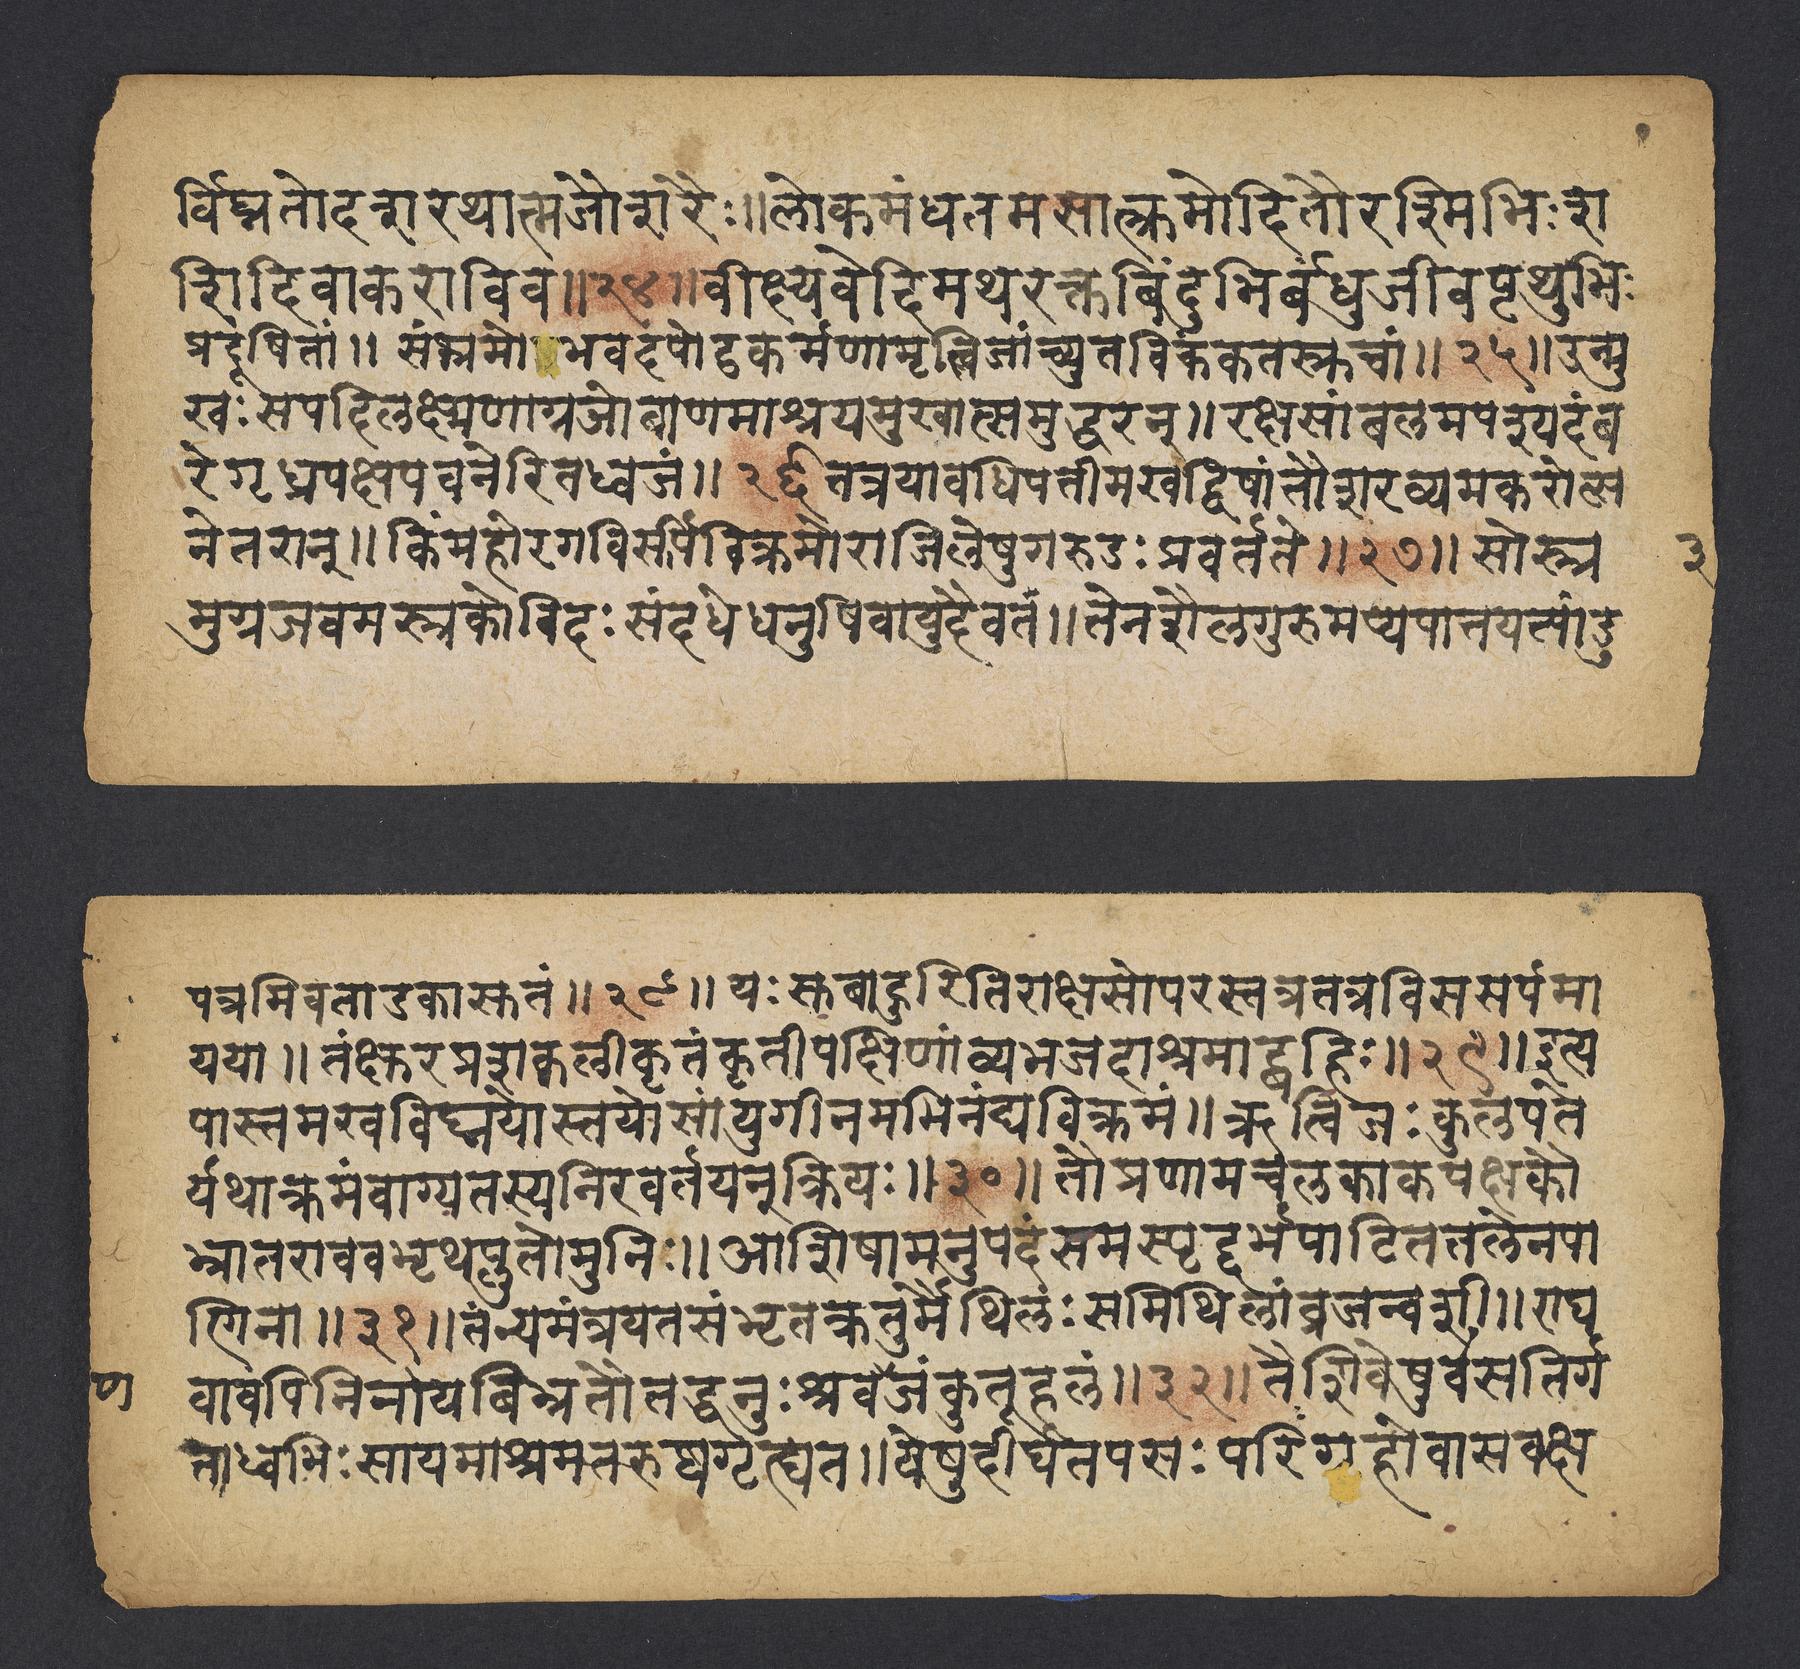 र्विघ्नतोदशरथात्मजौशरैः॥लोकमंधतमसात्क्रमोदितौरश्मिभिःश
शिदिवाकराविव॥२४॥वीक्ष्यवेदिमथरक्तबिंदुभिर्बंधुजीवपृथुभिः
प्रदूषितां॥ संभ्रमोभवदपोढकर्मणामृत्विजांच्युतविकंकतस्रुचां॥२५॥उन्मु
खःसपदिलक्ष्मणाग्रजोबाणमाश्रयमुखात्समुद्धरन्॥रक्षसांबलमपश्यदंब
रेगृध्रपक्षपवनेरितध्वजं॥२६तत्रयावधिपतीमखद्विषांतौशरव्यमकरोत्स
नेतरान्॥किंमहोरगविसर्पिविक्रमोराजिलेषुगरुडःप्रवर्तते॥२७॥सोस्त्र
३
मुग्रजवमस्त्रकोविदःसंदधेधनुषिवायुदैवतं॥तेनशैलगुरुमप्यपातयत्पांडु
पत्रमिवताडकासुतं॥२८॥यःसुबाहुरितिराक्षसोपरस्तत्रतत्रविससर्पमा
यया॥तंक्षुरप्रशकलीकृतंकृतीपक्षिणांव्यभजदाश्रमाद्बहिः॥२९॥इत्य
पास्तमखविघ्नयोस्तयोःसांयुगीनमभिनंद्यविक्रमं॥ऋत्विजःकुलपते
र्यथाक्रमंवाग्यतस्यनिरवर्तयन्क्रियः॥३०॥तौप्रणामचलकाकपक्षकौ
भ्रातराववभृथप्लुतोमुनिः॥आशिषामनुपदंसमस्पृशद्दर्भपाटिततलेनपा
णिना॥३१॥तंन्यमंत्रयतसंभृतक्रतुर्मैथिलःसमिथिलांव्रजन्वशी॥राघ
वावपिनिनायबिभ्रतौतद्धनुःश्रवजंकुतूहलं॥३२॥तैशिवेषुवसतिर्ग
ताध्वभिःसायमाश्रमतरुष्वगृह्यत॥येषुदीर्घतपसःपरिग्रहोवासवक्ष